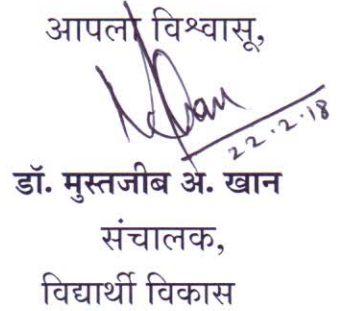 आपला विश्वासू,
22.2.18
डॉ. मुस्तजीब अ. खान
संचालक,
विद्यार्थी विकास